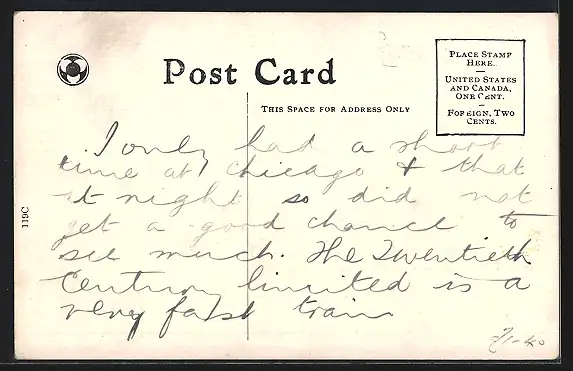 Post Card
THIS SPACE FOR ADDRESS ONLY
PLACE STAMP
HERE.
UNITED STATES
AND CANADA,
ONE CENT.
FOREIGN, TWO
CENTS.
I only had a short
time at Chicago & that
at night so did not
get a good chance to
see much. The Twentieth
Century limited is a
very fast train
119C